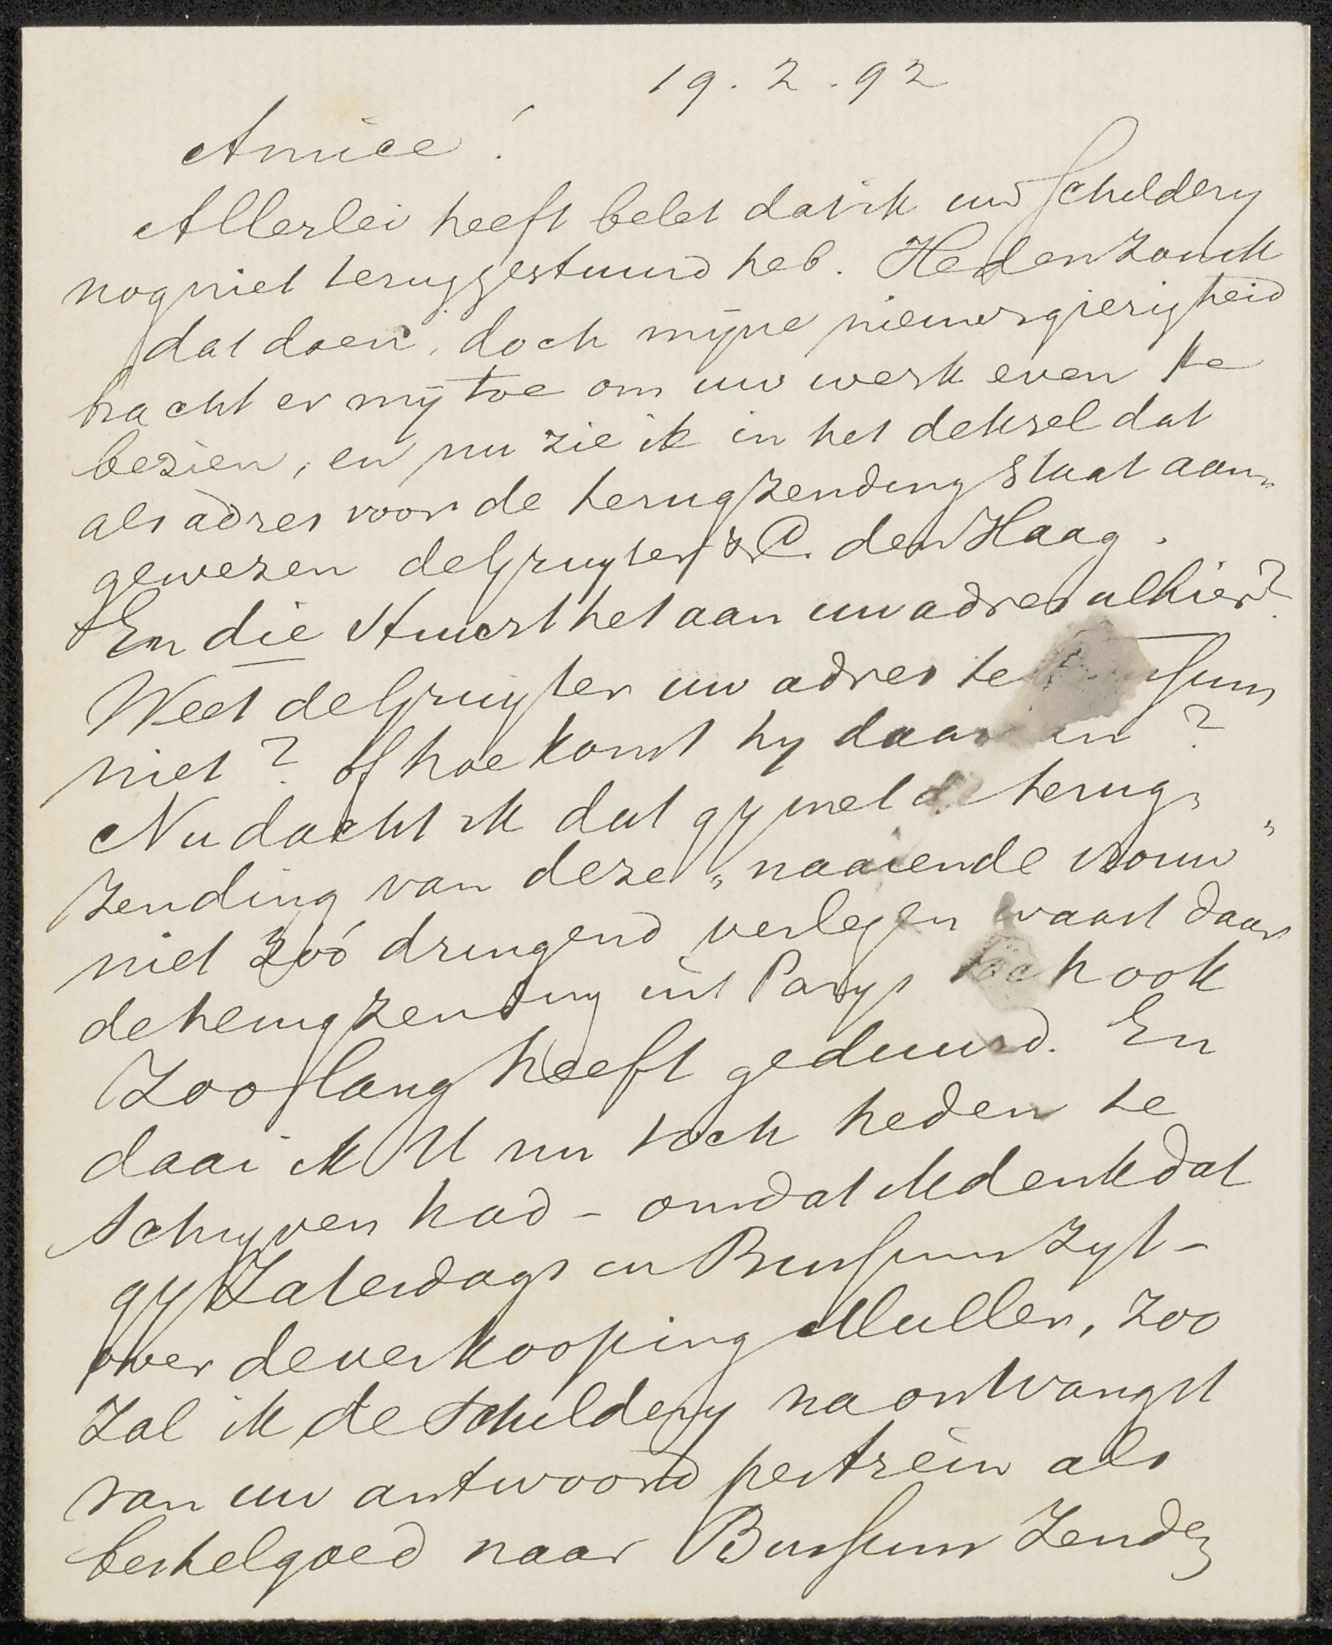 19.2.92
Amice!
Allerlei heeft belet dat ik uw schildery
nog niet teruggestuurd heb. Heden zou ik
dat doen, doch mijne nieuwsgierigheid
bracht er mij toe om uw werk even te
bezien, en nu zie ik in het deksel dat
als adres voor de terugzending staat aan„
gewezen de Gruyter & C. den Haag.
En die stuurt het aan uw adres alhier?
Weet de Gruyter uw adres te Bussum
niet? of hoe komt hy daar an?
Nu dacht ik dat gy met de terug„
zending van deze „naaiende vrouw”
niet zóó dringend verlegen waart daar
de terugzending uit Parys toch ook
zoo lang heeft geduurd. En
daar ik U nu toch heden te
schryven had – omdat ik denk dat
gy Zaterdags in Bussum zyt –
over de verkooping Muller, zoo
zal ik de schildery na ontvangst
van uw antwoord per trein als
bestelgoed naar Bussum zenden